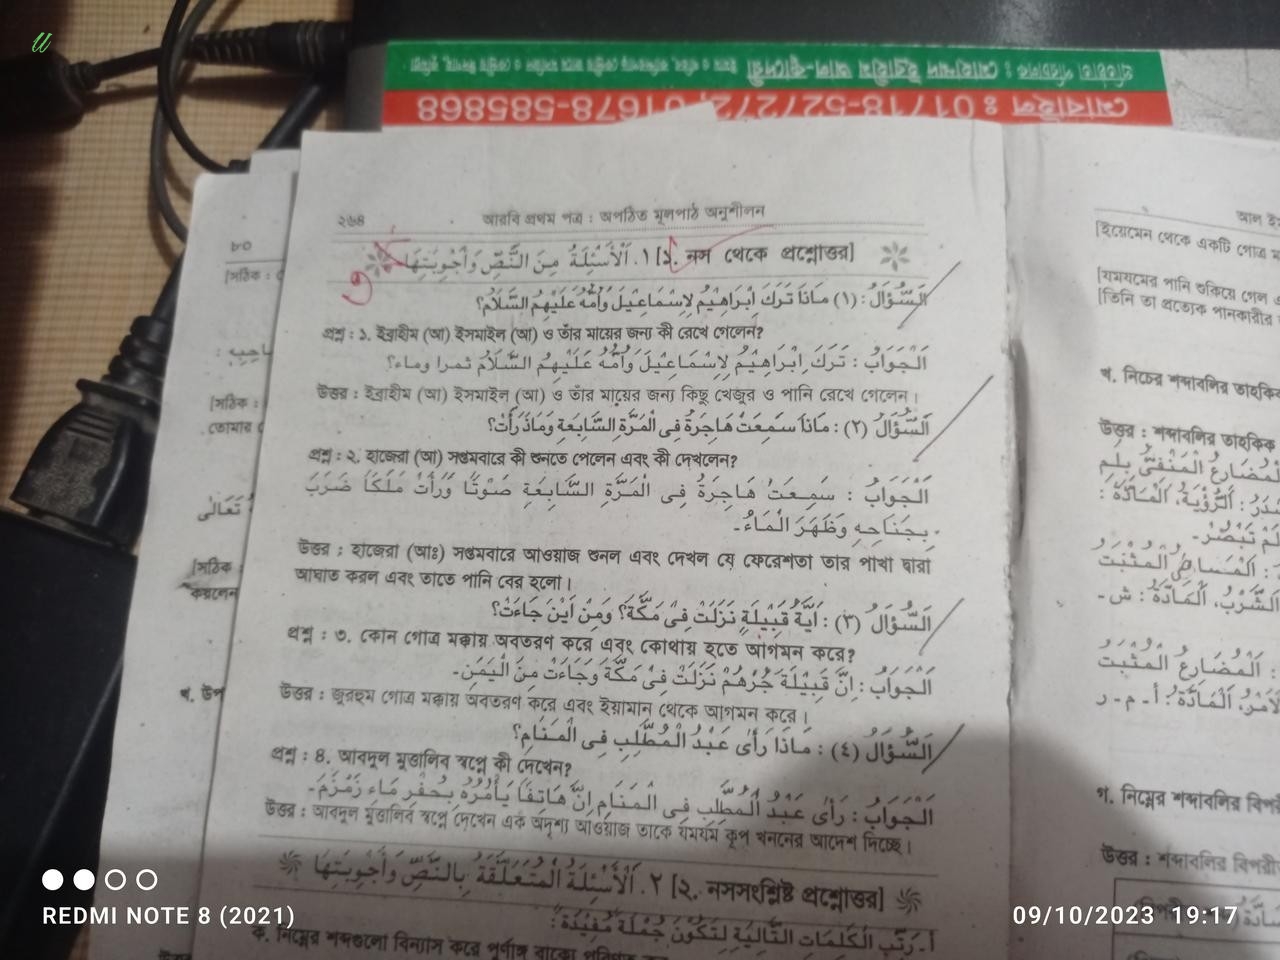 মোবাইল : 01718-527272, 01678-585868
২৬৪
আরবি প্রথম পত্র : অপঠিত মূলপাঠ অনুশীলন
[১. নস থেকে প্রশ্নোত্তর] ١. اَلْأَسْئِلَةُ مِنَ النَّصِّ وَأَجْوِبَتِهَا
اَلسُّؤَالُ : (١) مَاذَا تَرَكَ اِبْرَاهِيْمُ لِاِسْمَاعِيْلَ وَأُمُّهُ عَلَيْهِمُ السَّلَامُ؟
প্রশ্ন : ১. ইব্রাহীম (আ) ইসমাইল (আ) ও তাঁর মায়ের জন্য কী রেখে গেলেন?
اَلْجَوَابُ : تَرَكَ اِبْرَاهِيْمُ لِاِسْمَاعِيْلَ وَأُمُّهُ عَلَيْهِمُ السَّلَامُ ثمرا وماء؟
উত্তর : ইব্রাহীম (আ) ইসমাইল (আ) ও তাঁর মায়ের জন্য কিছু খেজুর ও পানি রেখে গেলেন।
اَلسُّؤَالُ (٢) : مَاذَا سَمِعَتْ هَاجِرَةُ فِى الْمَرَّةِ السَّابِعَةِ وَمَاذَا رَأَتْ؟
প্রশ্ন : ২. হাজেরা (আ) সপ্তমবারে কী শুনতে পেলেন এবং কী দেখলেন?
اَلْجَوَابُ : سَمِعَتْ هَاجِرَةُ فِى الْمَرَّةِ السَّابِعَةِ صَوْتًا وَرَأَتْ مَلَكًا ضَرَبَ
بِجَنَاحِهِ وَظَهَرَ الْمَاءُ-
উত্তর : হাজেরা (আঃ) সপ্তমবারে আওয়াজ শুনল এবং দেখল যে ফেরেশতা তার পাখা দ্বারা
আঘাত করল এবং তাতে পানি বের হলো।
اَلسُّؤَالُ (٣) : أَيَّةُ قَبِيْلَةٍ نَزَلَتْ فِىْ مَكَّةَ؟ وَمِنْ اَيْنَ جَاءَتْ؟
প্রশ্ন : ৩. কোন গোত্র মক্কায় অবতরণ করে এবং কোথায় হতে আগমন করে?
اَلْجَوَابُ : اِنَّ قَبِيْلَةَ جُرْهُمْ نَزَلَتْ فِىْ مَكَّةَ وَجَاءَتْ مِنَ الْيَمَنِ-
উত্তর : জুরহুম গোত্র মক্কায় অবতরণ করে এবং ইয়ামান থেকে আগমন করে।
اَلسُّؤَالُ (٤) : مَاذَا رَأٰى عَبْدُ الْمُطَّلِبِ فِى الْمَنَامِ؟
প্রশ্ন : ৪. আবদুল মুত্তালিব স্বপ্নে কী দেখেন?
اَلْجَوَابُ : رَأٰى عَبْدُ الْمُطَّلِبِ فِى الْمَنَامِ اِنَّ هَاتِفًا يَأْمُرُهُ بِحَفْرِ مَاءِ زَمْزَمَ-
উত্তর : আবদুল মুত্তালিব স্বপ্নে দেখেন এক অদৃশ্য আওয়াজ তাকে যমযম কূপ খননের আদেশ দিচ্ছে।
[২. নসসংশ্লিষ্ট প্রশ্নোত্তর] ٢. اَلْأَسْئِلَةُ الْمُتَعَلِّقَةُ بِالنَّصِّ وَأَجْوِبَتِهَا
أ- رَتِّبِ الْكَلِمَاتِ التَّالِيَةِ لِتَكُوْنَ جُمْلَةً مُفِيْدَةً :
ক. নিম্নের শব্দগুলো বিন্যাস করে পূর্ণাঙ্গ বাক্যে
৮০
[সঠিক :
[সঠিক :
তোমার
تَعَالٰى
[সঠিক :
করলেন
খ. উপ
আল ই
[ইয়েমেন থেকে একটি গোত্র
[যমযমের পানি শুকিয়ে গেল
[তিনি তা প্রত্যেক পানকারীর
খ. নিচের শব্দাবলির তাহকিক
উত্তর : শব্দাবলির তাহকিক
اَلرُّؤْيَةُ، اَلْمَادَّةُ :
لَمْ تَبْصُرْ-
الْمُضَارِعُ الْمُثْبَتُ
الشُّرْبُ، اَلْمَادَّةُ : ش-
: اَلْمُضَارِعُ الْمُثْبَتُ
اَلْمَادَّةُ : أ-م-ر
গ. নিম্নের শব্দাবলির বিপরী
উত্তর : শব্দাবলির বিপরী
REDMI NOTE 8 (2021)
09/10/2023 19:17